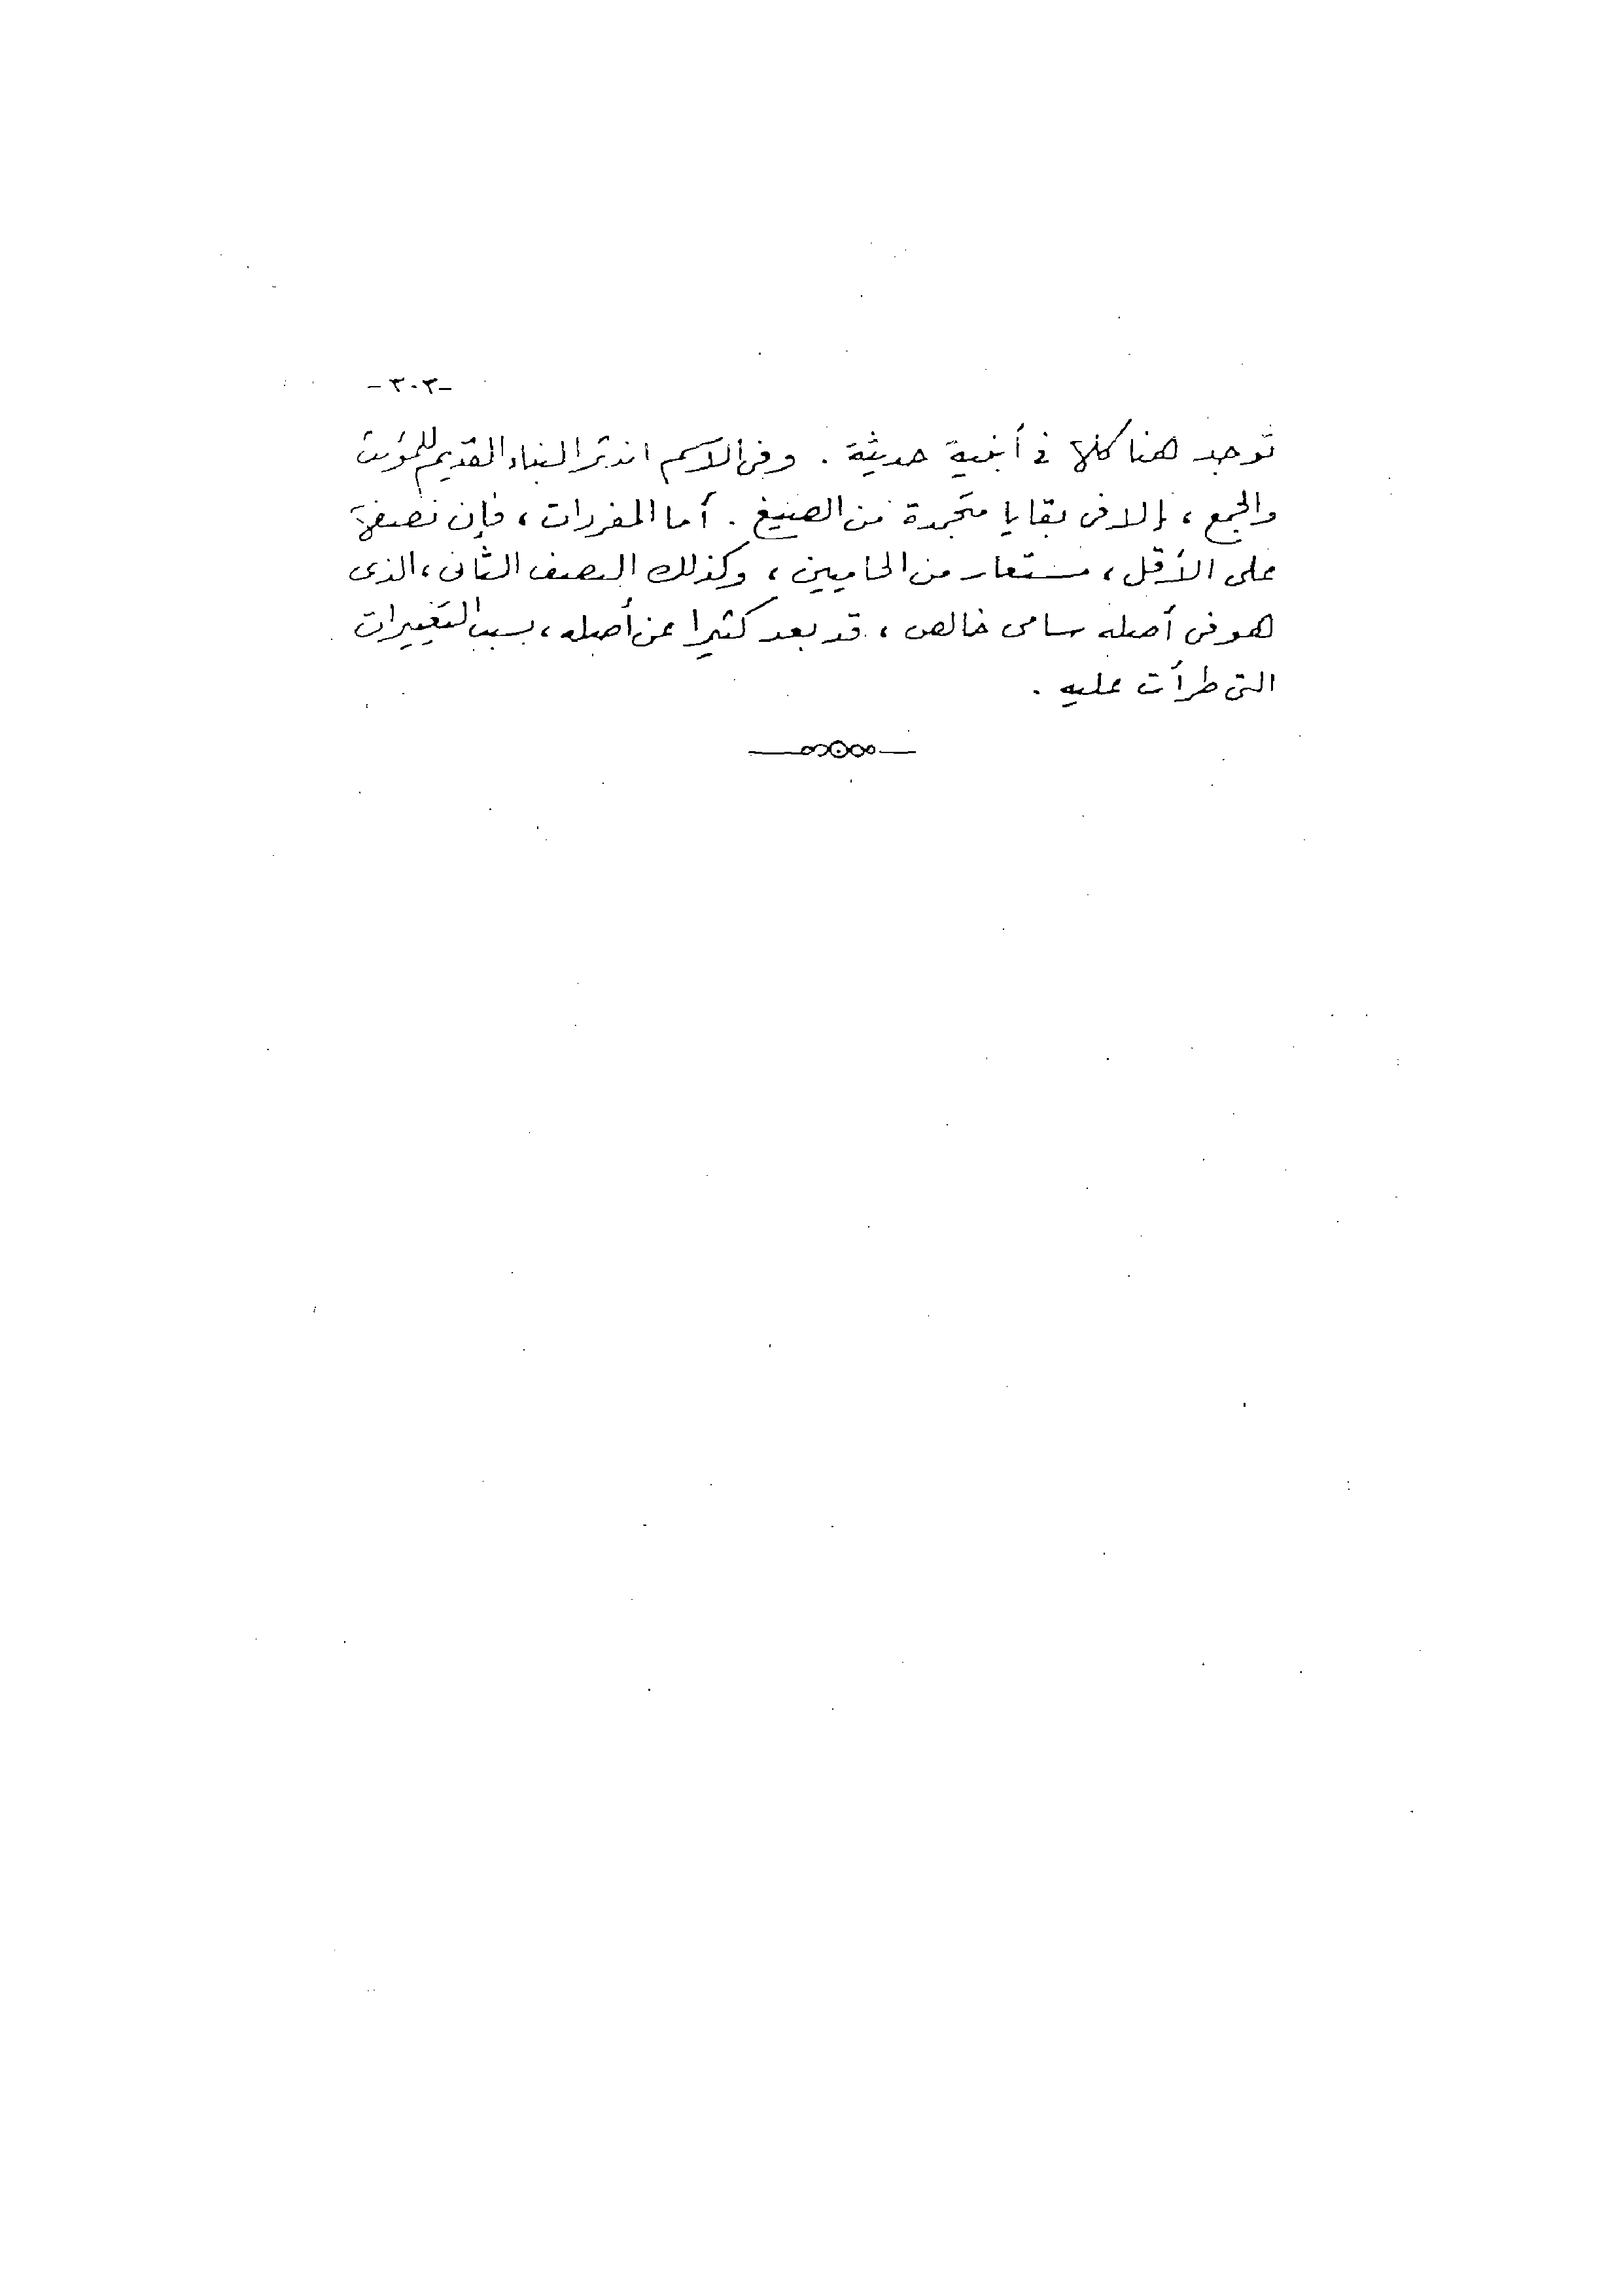 -٣٠٣-
توجد هنا كلها فى أبنية حديثة . وفى الاسم اندثر البناء القديم للمؤنث
والجمع ، إلا فى بقايا متجمدة من الصيغ . أما المفردات ، فإن نصفها
على الأقل ، مستعار من الحاميين ، وكذلك النصف الثانى ، الذى
هو فى أصله سامى خالص ، قد بعد كثيرا عن أصله ، بسبب التغييرات
التى طرأت عليه .